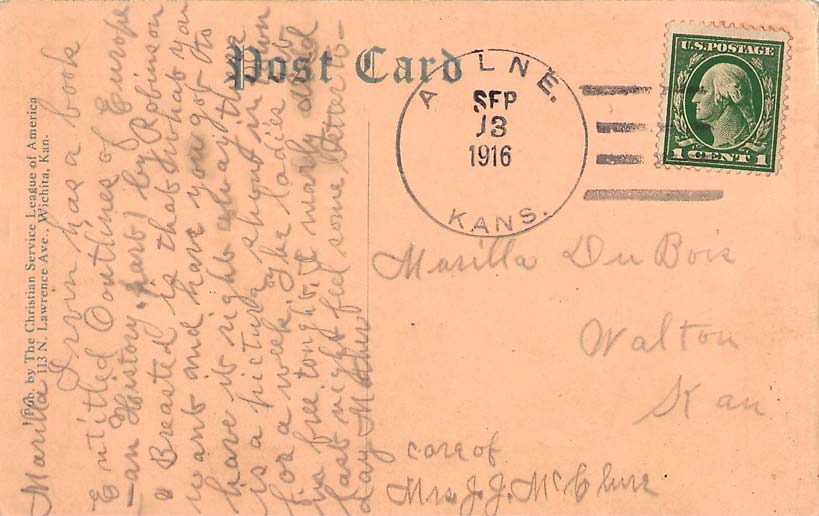 Post Card
A LNE.
SEP
13
1916
KANS.
U.S. POSTAGE
1 CENT 1
Pub. by The Christian Service League of America
113 N. Lawrence Ave., Wichita, Kan.
Marilla Irvin has a book
Entitled Outlines of Europe
-an History part 1 by Robinson
& Breasted is that what you
want and have you got to
have it right away there
is a picture show in
for a week. The ladies
in free tonight.
last night feel some better to-
day Mother
Marilla DuBois
Walton
Kan
care of
Mrs. J. J. McClure